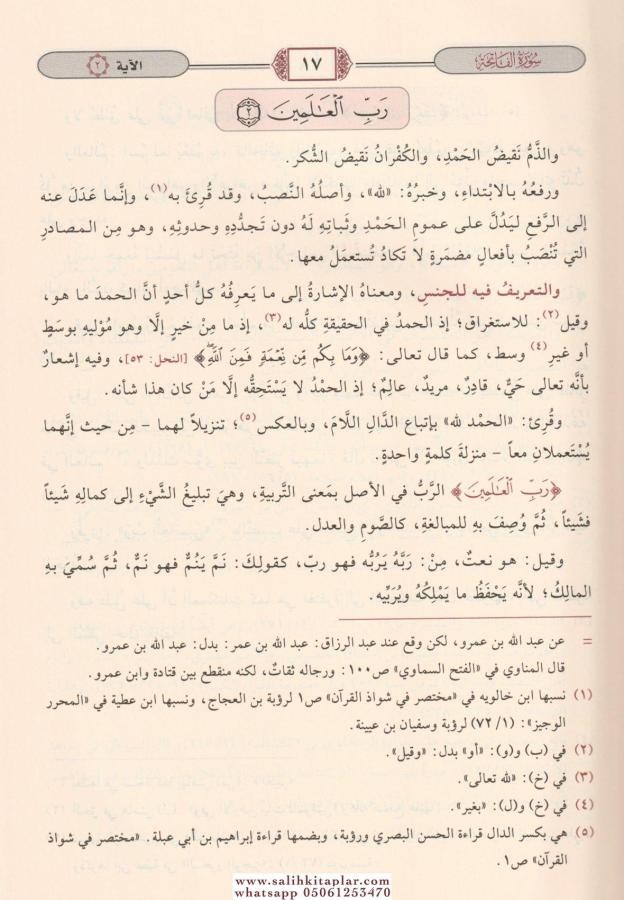 سُورَةُ الفَاتِحَةِ
١٧
الآية ٢
رَبِّ الْعَالَمِينَ ٢
والذَّمُّ نَقيضُ الحَمْدِ، والكُفْرانُ نَقيضُ الشُّكر.
ورفعُهُ بالابتداءِ، وخبرُهُ: «لله»، وأصلُهُ النَّصبُ، وقد قُرِئَ به(١)، وإنَّما عَدَلَ عنه
إلى الرَّفعِ ليَدُلَّ على عمومِ الحَمْدِ وثَباتِهِ لَهُ دون تَجدُّدِهِ وحدوثِهِ، وهو مِن المصادرِ
التي تُنْصَبُ بأفعالٍ مضمَرةٍ لا تَكادُ تُستعمَلُ معها.
والتعريفُ فيه للجنسِ، ومعناهُ الإشارةُ إلى ما يَعرفُهُ كلُّ أحدٍ أنَّ الحمدَ ما هو،
وقيل(٢): للاستغراق؛ إذ الحمدُ في الحقيقةِ كلُّه له(٣)، إذ ما مِن خيرٍ إلَّا وهو مُوْليهِ بوسَطٍ
أو غيرِ(٤) وسط، كما قال تعالى: ﴿وَمَا بِكُم مِّن نِّعْمَةٍ فَمِنَ اللَّهِ﴾ [النحل: ٥٣]، وفيه إشعارٌ
بأنَّه تعالى حَيٌّ، قادِرٌ، مريدٌ، عالِمٌ؛ إذ الحمْدُ لا يَسْتَحِقُّه إلَّا مَنْ كان هذا شأنه.
وقُرِئ: «الحمْد لله» بإتباعِ الدَّالِ اللَّامَ، وبالعكسِ(٥)؛ تنزيلاً لهما - مِن حيث إنَّهما
يُسْتَعملانِ معاً - منزلةَ كلمةٍ واحدةٍ.
﴿رَبِّ الْعَالَمِينَ﴾ الرَّبُّ في الأصل بمَعنى التَّربيةِ، وهيَ تبليغُ الشَّيْءِ إلى كمالِهِ شَيئاً
فشَيئاً، ثُمَّ وُصِفَ بهِ للمبالغةِ، كالصَّومِ والعدلِ.
وقيل: هو نعتٌ، مِنْ: رَبَّهُ يَرُبُّه فهو ربّ، كقولِكَ: نَمَّ يَنُمُّ فهو نَمٌّ، ثُمَّ سُمِّيَ بهِ
المالِكُ؛ لأنَّه يَحْفَظُ ما يَمْلِكُهُ ويُرَبِّيه.
= عن عبد الله بن عمرو، لكن وقع عند عبد الرزاق: عبد الله بن عمر: بدل: عبد الله بن عمرو.
قال المناوي في «الفتح السماوي» ص١٠٠: ورجاله ثقاتٌ، لكنه منقطع بين قتادة وابن عمرو.
(١) نسبها ابن خالويه في «مختصر في شواذ القرآن» ص١ لرؤبة بن العجاج، ونسبها ابن عطية في «المحرر
الوجيز»: (١/ ٧٢) لرؤبة وسفيان بن عيينة.
(٢) في (ب) و(و): «أو» بدل: «وقيل».
(٣) في (خ): «لله تعالى».
(٤) في (خ) و(ل): «بغير».
(٥) هي بكسر الدال قراءة الحسن البصري ورؤبة، وبضمها قراءة إبراهيم بن أبي عبلة. «مختصر في شواذ
القرآن» ص١.
www.salihkitaplar.com
whatsapp 05061253470